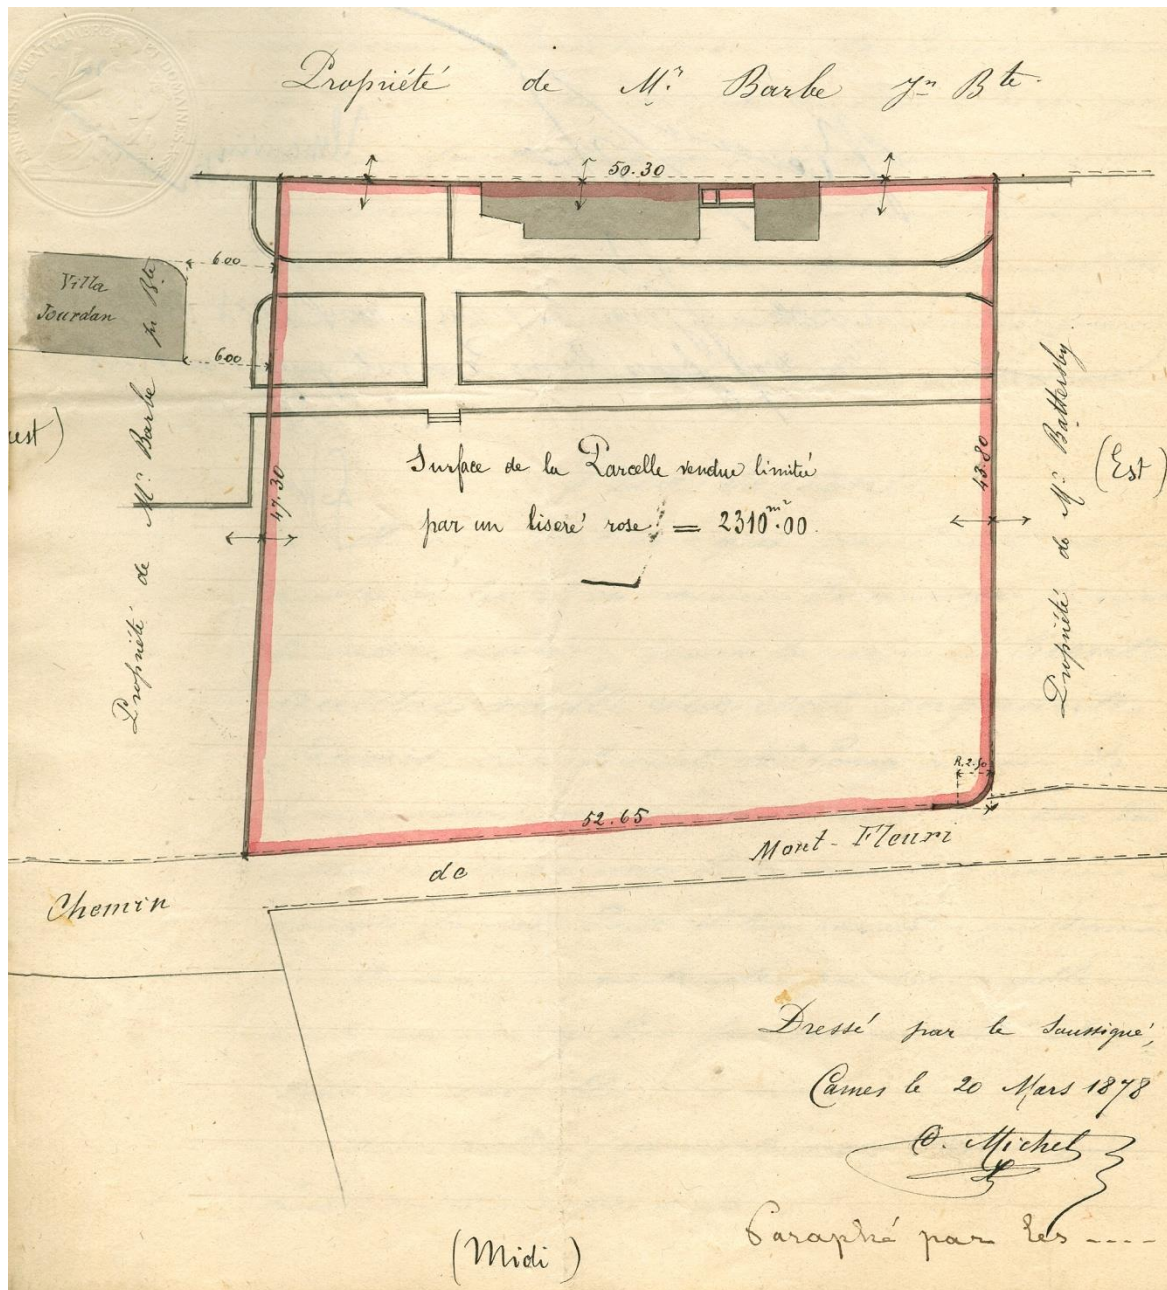 Propriété de Mr. Barbe Jn Bte
50.30
Villa
Jourdan
6.00
6.00
Propriété de Mr. Barbe Jn Bte
uest)
47.30
Surface de la Parcelle vendue limitée
par un liseré rose = 2310m².00.
43.80
Propriété de Mr. Battersby
(Est)
R.2.50
52.65
Chemin de Mont-Fleuri
Dressé par le Soussigné,
Cannes le 20 Mars 1878
O. Michel
Paraphé par les ----
(Midi)